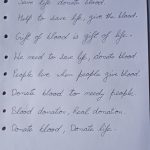 Save life donate blood.
Help to save life, give the blood.
Gift of blood is gift of life.
We need to save life, donate blood.
People live when people give blood.
Donate blood to needy people.
Blood donation, Real donation.
Donate blood, Donate life.